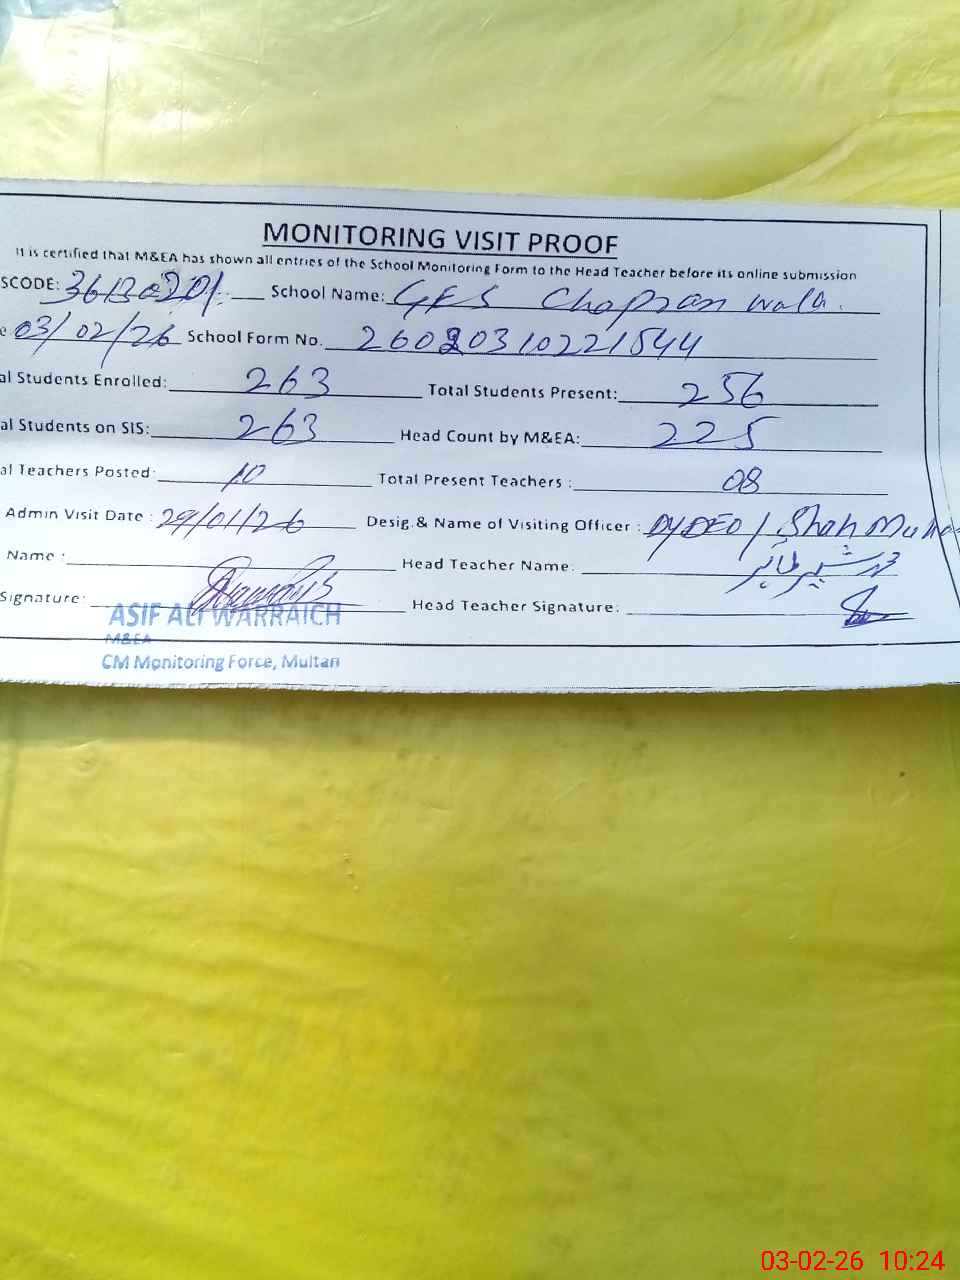 MONITORING VISIT PROOF
It is certified that M&EA has shown all entries of the School Monitoring Form to the Head Teacher before its online submission
SCODE: 36130201 School Name: GES Chapran wala.
e 03/02/26 School Form No. 26020310221544
al Students Enrolled: 263 Total Students Present: 256
al Students on SIS: 263 Head Count by M&EA: 225
al Teachers Posted: 10 Total Present Teachers : 08
Admin Visit Date : 29/01/26 Desig.& Name of Visiting Officer : DYDEO / Shah
Name : Head Teacher Name: محمد شبیر طاہر
Signature: Head Teacher Signature:
ASIF ALI WARRAICH
M&EA
CM Monitoring Force, Multan
03-02-26 10:24